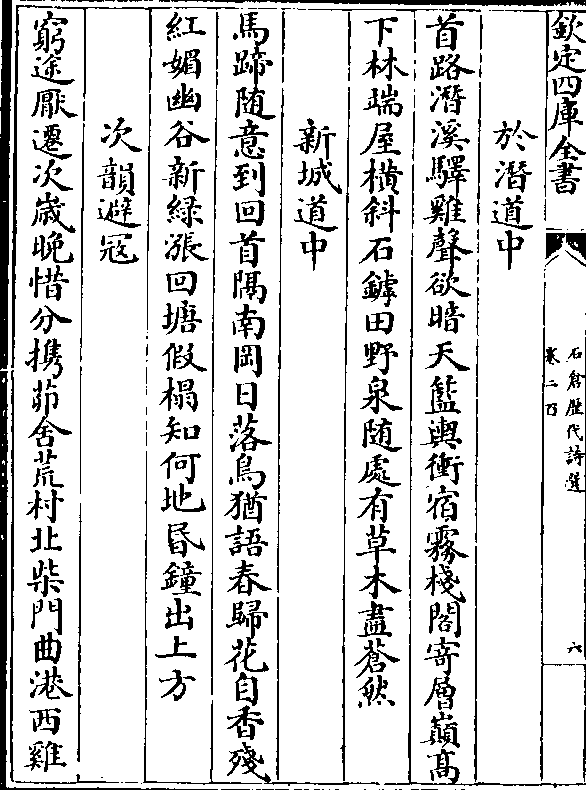 欽定四庫全書
石倉歷代詩選
卷二百
六
於潛道中
首路潛溪驛雞聲欲暗天籃輿衝宿霧棧閣寄層巔髙
下林端屋橫斜石罅田野泉随處有草木盡蒼然
新城道中
馬蹄随意到回首隔南岡日落鳥猶語春歸花自香殘
紅媚幽谷新緑漲回塘假榻知何地昏鐘出上方
次韻避冦
窮途厭遷次歲晩惜分携茆舍荒村北柴門曲港西雞